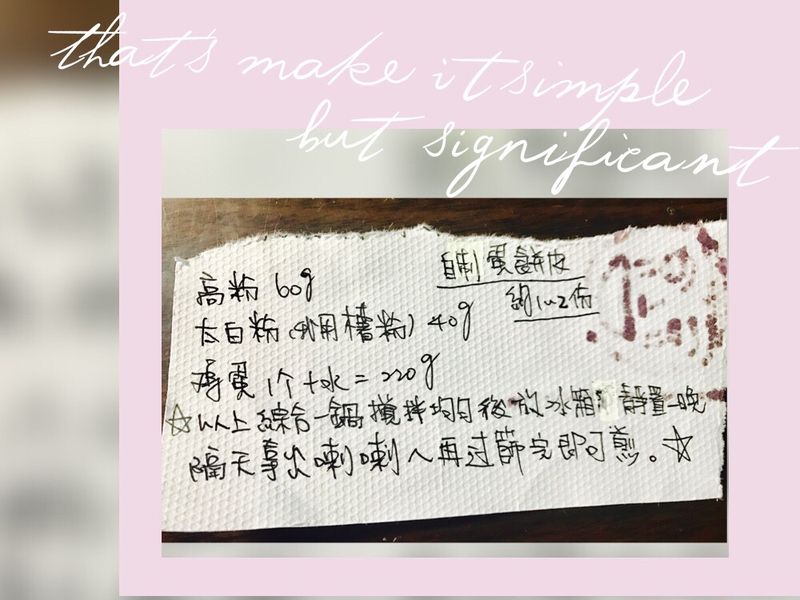 that's make it simple
but significant
自制蛋餅皮
約1~2份
高粉 60g
太白粉 (用粉) 40g
蛋 1个+水=220g
☆以上綜合一鍋攪拌均勻後放冰箱靜置一晚
隔天拿出喇喇ㄟ再过篩完即可煎。☆